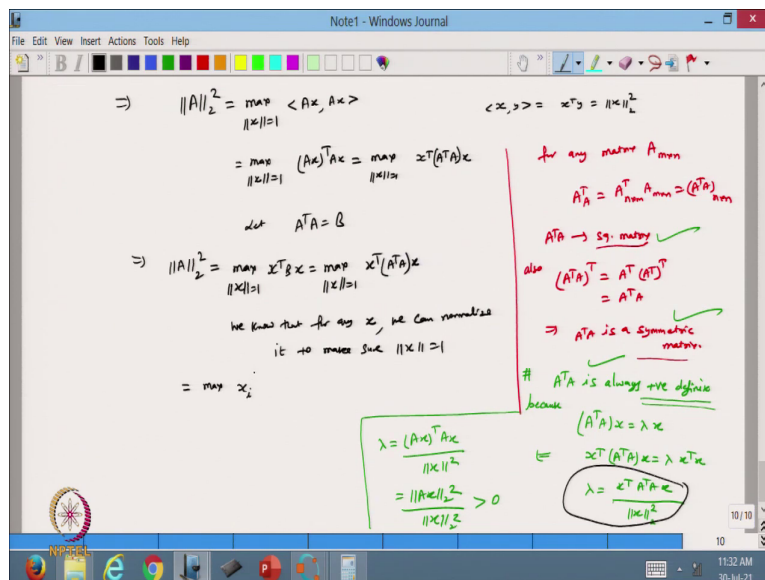 Note1 - Windows Journal
File Edit View Insert Actions Tools Help
B I
⇒ ||A||₂² = max <Ax, Ax>
||x||=1
= max (Ax)ᵀAx = max xᵀ(AᵀA)x
||x||=1 ||x||=1
Let AᵀA = B
⇒ ||A||₂² = max xᵀBx = max xᵀ(AᵀA)x
||x||=1 ||x||=1
We know that for any x, we can normalize
it to make sure ||x|| = 1
= max xᵢ
<x, y> = xᵀy = ||x||₂²
for any matrix Amxn
AᵀA = Aᵀnxm Amxn = (AᵀA)nxn
AᵀA → sq. matrix
also (AᵀA)ᵀ = Aᵀ(Aᵀ)ᵀ
= AᵀA
⇒ AᵀA is a symmetric
matrix.
# AᵀA is always +ve definite
because
(AᵀA)x = λx
xᵀ(AᵀA)x = λ xᵀx
λ = xᵀAᵀAx
||x||₂²
λ = (Ax)ᵀAx
||x||²
= ||Ax||₂² > 0
||x||₂²
10/10
10
NPTEL
11:32 AM
30-Jul-21